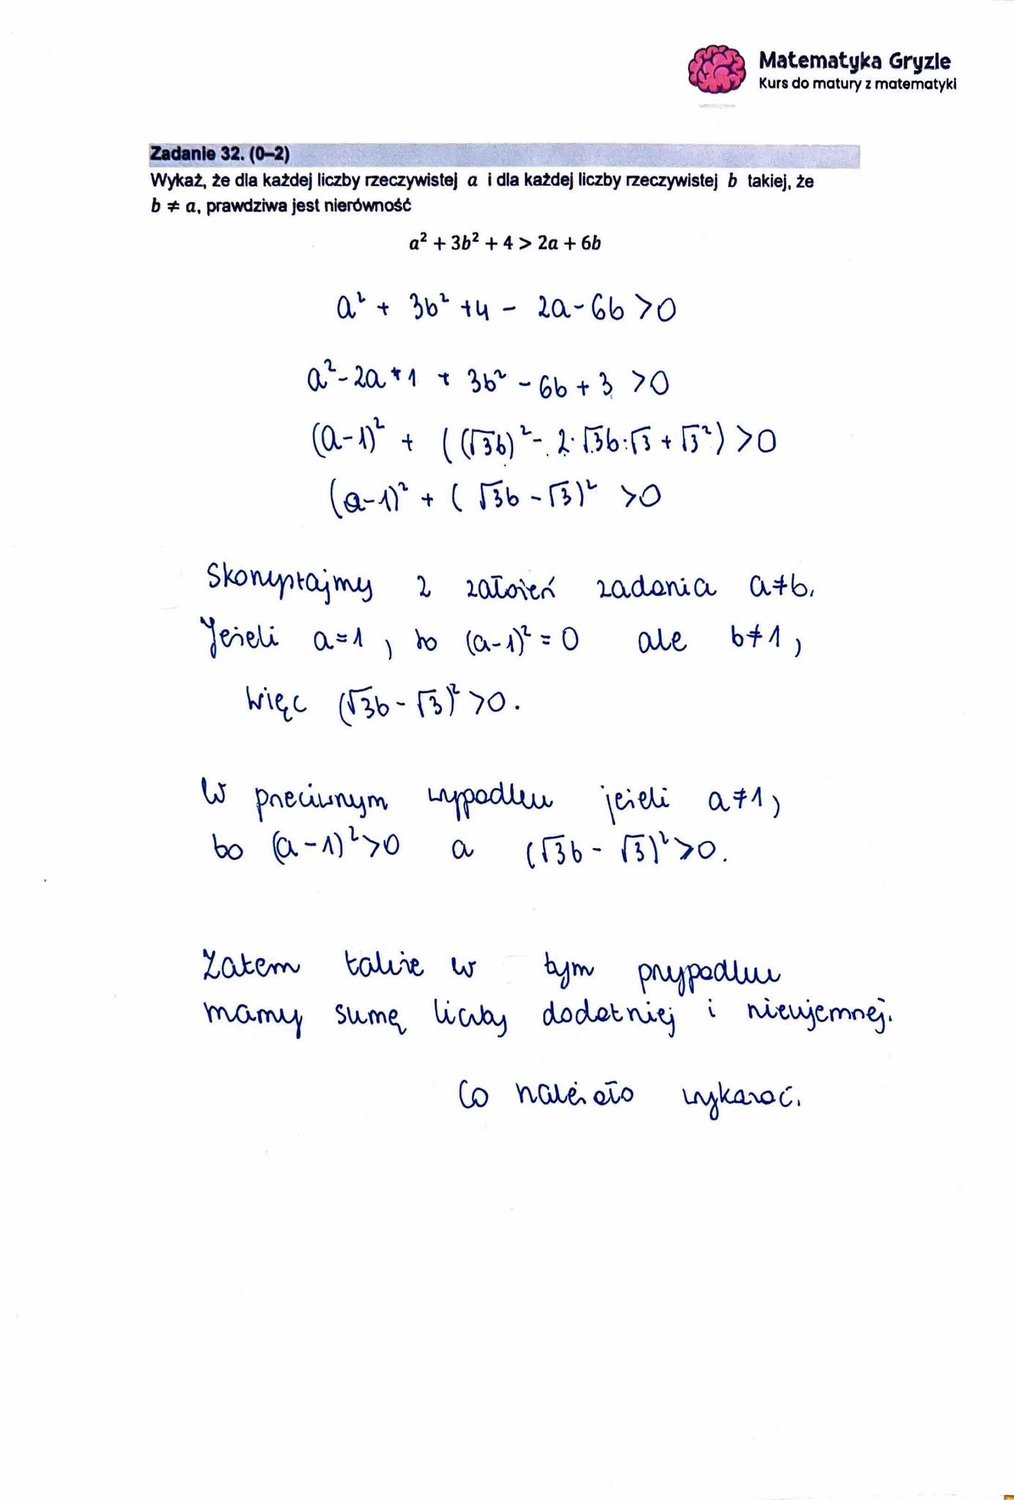 Matematyka Gryzie
Kurs do matury z matematyki
Zadanie 32. (0–2)
Wykaż, że dla każdej liczby rzeczywistej a i dla każdej liczby rzeczywistej b takiej, że
b ≠ a, prawdziwa jest nierówność
a² + 3b² + 4 > 2a + 6b
a² + 3b² + 4 - 2a - 6b > 0
a² - 2a + 1 + 3b² - 6b + 3 > 0
(a-1)² + ((√3b)² - 2·√3b·√3 + √3²) > 0
(a-1)² + (√3b - √3)² > 0
Skorzystajmy z założeń zadania a≠b.
Jeżeli a=1, to (a-1)² = 0 ale b≠1,
więc (√3b - √3)² > 0.
W przeciwnym wypadku jeżeli a≠1,
to (a-1)² > 0 a (√3b - √3)² > 0.
Zatem także w tym przypadku
mamy sumę liczby dodatniej i nieujemnej.
Co należało wykazać.